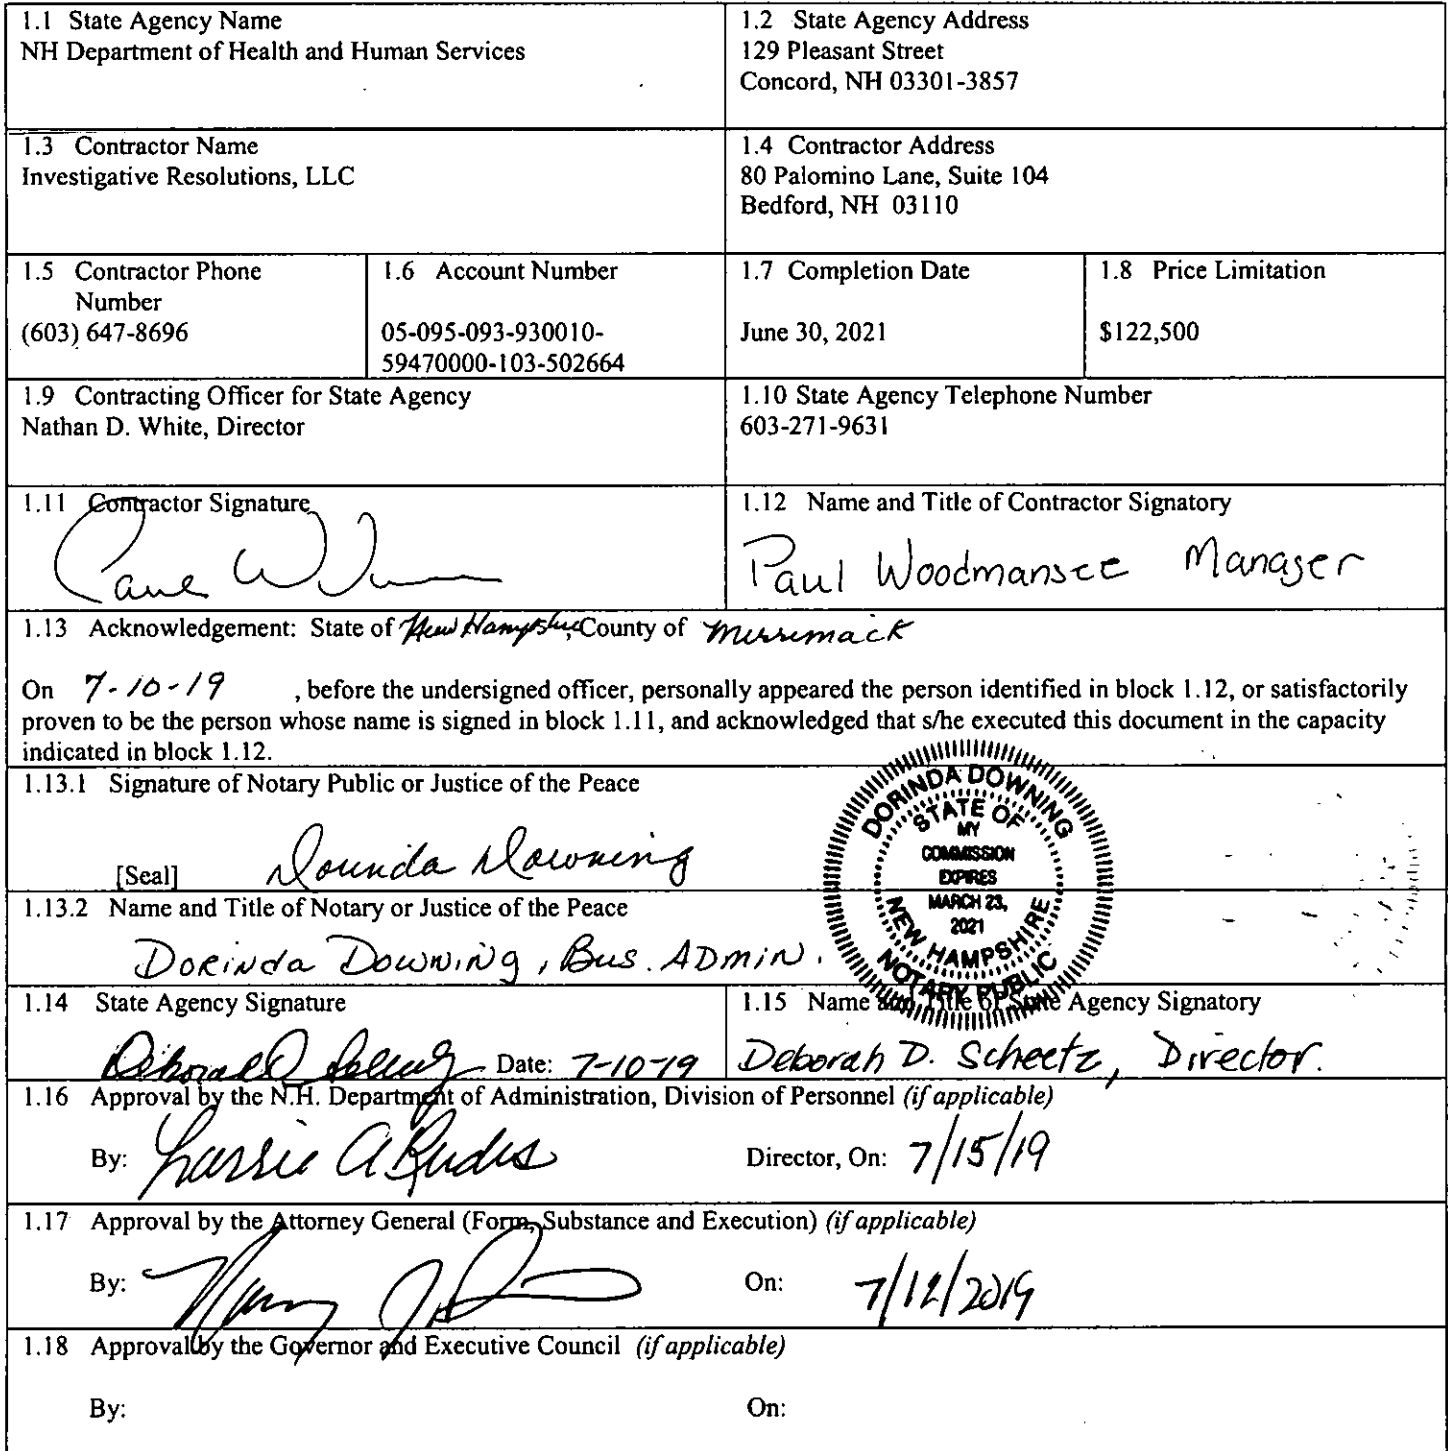 1.1 State Agency Name
NH Department of Health and Human Services
1.2 State Agency Address
129 Pleasant Street
Concord, NH 03301-3857
1.3 Contractor Name
Investigative Resolutions, LLC
1.4 Contractor Address
80 Palomino Lane, Suite 104
Bedford, NH 03110
1.5 Contractor Phone
Number
(603) 647-8696
1.6 Account Number
05-095-093-930010-
59470000-103-502664
1.7 Completion Date
June 30, 2021
1.8 Price Limitation
$122,500
1.9 Contracting Officer for State Agency
Nathan D. White, Director
1.10 State Agency Telephone Number
603-271-9631
1.11 Contractor Signature
Paul
1.12 Name and Title of Contractor Signatory
Paul Woodmansee Manager
1.13 Acknowledgement: State of New Hampshire, County of Merrimack
On 7-10-19 , before the undersigned officer, personally appeared the person identified in block 1.12, or satisfactorily
proven to be the person whose name is signed in block 1.11, and acknowledged that s/he executed this document in the capacity
indicated in block 1.12.
1.13.1 Signature of Notary Public or Justice of the Peace
[Seal] Dorinda Downing
DORINDA DOWNING
STATE OF
MY
COMMISSION
EXPIRES
MARCH 23,
2021
NEW HAMPSHIRE
NOTARY PUBLIC
1.13.2 Name and Title of Notary or Justice of the Peace
Dorinda Downing, Bus. Admin.
1.14 State Agency Signature
Date: 7-10-19
1.15 Name and Title of State Agency Signatory
Deborah D. Scheetz, Director.
1.16 Approval by the N.H. Department of Administration, Division of Personnel (if applicable)
By: Director, On: 7/15/19
1.17 Approval by the Attorney General (Form, Substance and Execution) (if applicable)
By: On: 7/12/2019
1.18 Approval by the Governor and Executive Council (if applicable)
By: On: